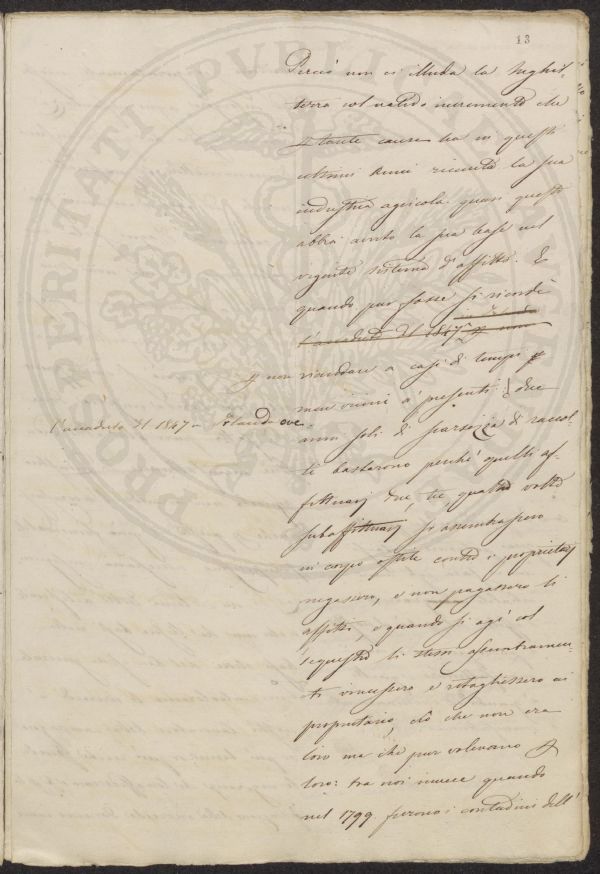 13
Perciò non ci illuda la Inghil-
terra col valido incremento che
p tante cause ha in questi
ultimi anni ricevuto la sua
industria agricola quasi questi
abbia avuto la sua base nel
vigente sistema d'affitto. E
quando pur fosse si ricordi
l'accaduto del 1847 p non
p non ricordare a casi di tempi
men vicini a' presenti: due
l'accaduto del 1847 in Irlanda ove
anni soli di scarsezza di raccol-
ti bastarono perché quelli af-
fittuarj due, tre, quattro volte
subaffittuarj si assembrassero
in corpo ostile contro i proprietarj
negassero, e non pagassero li
affitti, e quando si agì col
sequestro li stessi
ti vincessero e ritogliessero ai
proprietario, ciò che non era
loro ma che pur volevano p
loro: tra noi invece quando
nel 1799 furono i contadini dell'
PROSPERITATI PUBLICAE